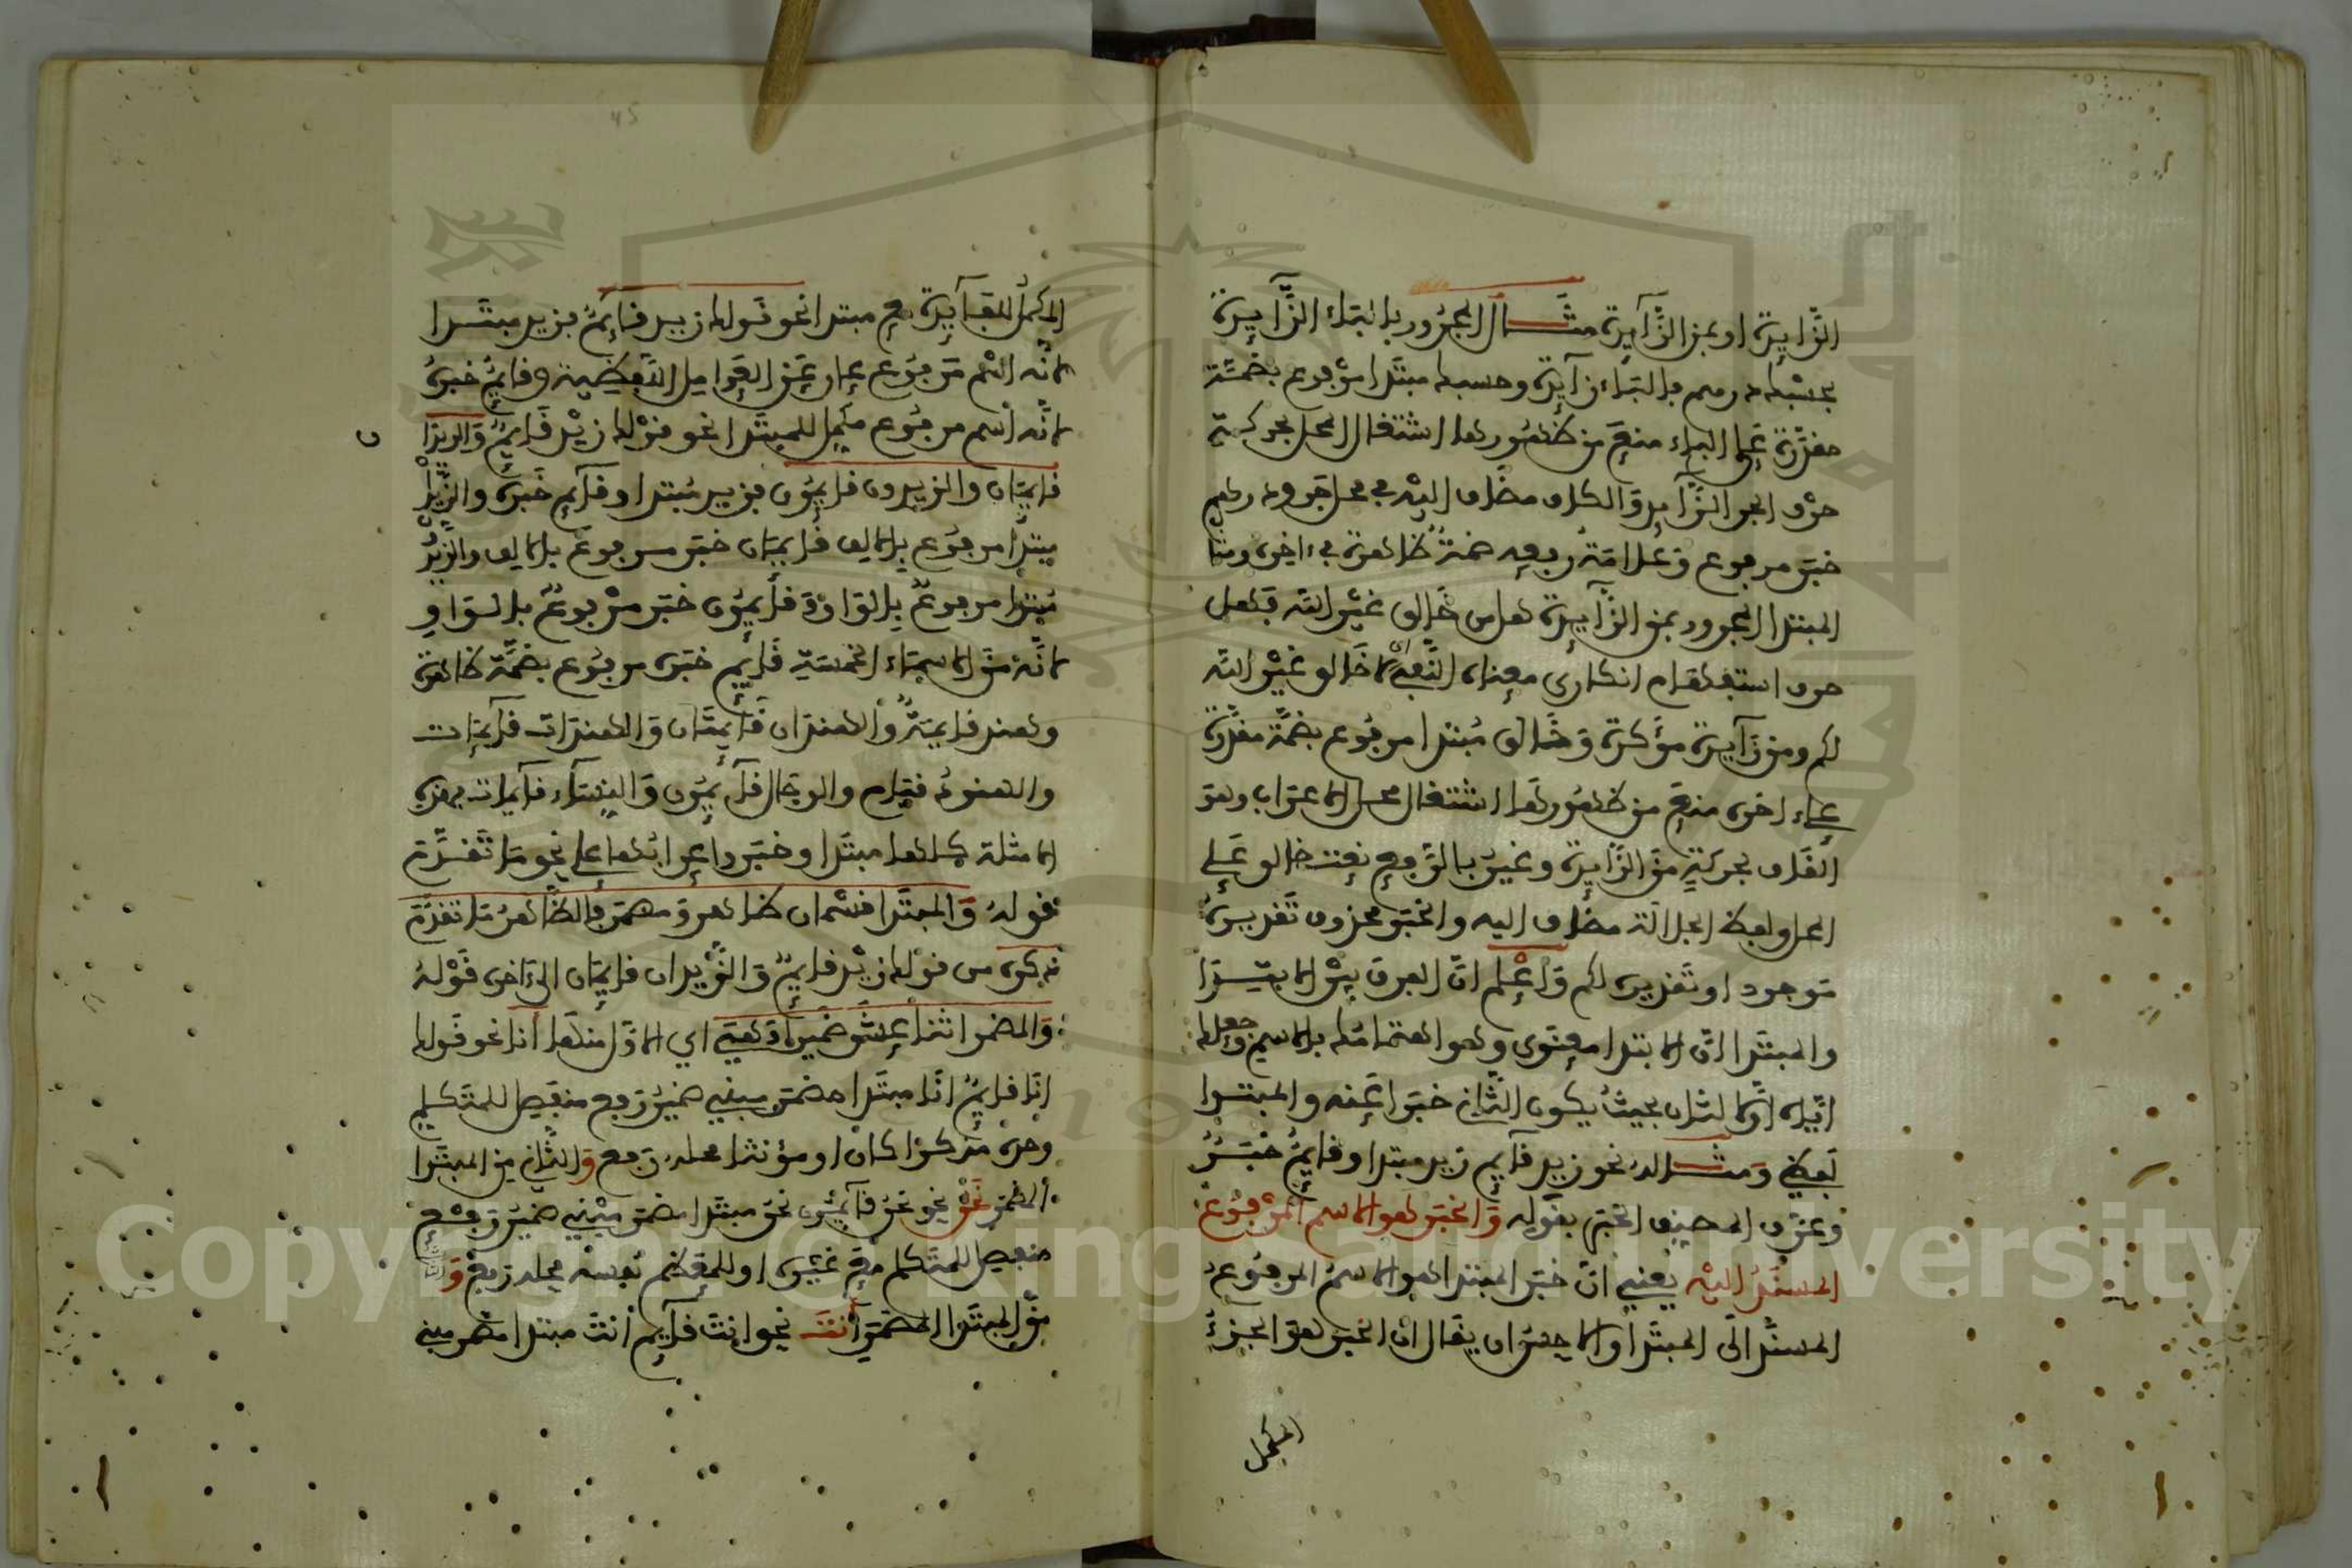 الزايدة او بمن الزايدة مثال المجرور بالباء الزايدة
بحسبك درهم فالباء زايدة وحسبك مبتدا مرفوع بضمة
مقدرة على الباء منع من ظهورها اشتغال المحل بحركة
حرف الجر الزايد والكاف مضاف اليه في محل جر ودرهم
خبر مرفوع وعلامة رفعه ضمة ظاهرة في ءاخره ومثال
المبتدا المجرور بمن الزايدة هل من خالق غير الله فهل
حرف استفهام انكاري معناه النفي اي لا خالق غير الله
لكم ومن زايدة مؤكدة وخالق مبتدا مرفوع بضمة مقدرة
على ءاخره منع من ظهورها اشتغال محل الاعراب وهو
القاف بحركة من الزايدة وغير بالرفع نعت خالق على
المحل ولفظ الجلالة مضاف اليه والخبر محذوف تقديره
موجود او تقديره لكم واعلم ان الفرق بين الابتدا
والمبتدا ان الابتدا معنوي وهو اهتمامك بالاسم وجعلك
اياه اولا لثان بحيث يكون الثاني خبرا عنه والمبتدا
لفظي ومثاله نحو زيد قايم زيد مبتدا وقايم خبر
وعرف المصنف الخبر بقوله والخبر هو الاسم المرفوع
المسند اليه يعني ان خبر المبتدا هو الاسم المرفوع
المسند الى المبتدا والاحسن ان يقال ان الخبر هو الجزء
المكمل
45
المكمل للفايدة مع مبتدا نحو قولك زيد قايم فزيد مبتدا
لانه اسم مرفوع عار عن العوامل اللفظية وقايم خبره
لانه اسم مرفوع مكمل للمبتدا نحو قولك زيد قايم والزيدان
قايمان والزيدون قايمون فزيد مبتدا وقايم خبره والزيدان
مبتدا مرفوع بالالف قايمان خبر مرفوع بالالف والزيدون
مبتدا مرفوع بالواو وقايمون خبر مرفوع بالواو
لانه من الاسماء الخمسة قايم خبره مرفوع بضمة ظاهرة
وهند قايمة والهندان قايمتان والهندات قايمات
والهنود قيام والرجال قايمون والنساء قايمات فهذه
الامثلة كلها مبتدا وخبر واعرابها على نحو ما تقدم
قوله والمبتدا قسمان ظاهر ومضمر فالظاهر ما تقدم
ذكره من قولك زيد قايم والزيدان قايمان الى ءاخره قوله
والمضمر اثنا عشر ضميرا وهي اي الاول منها انا نحو قولك
انا قايم انا مبتدا مضمر مبني ضمير رفع منفصل للمتكلم
وحده مذكرا كان او مؤنثا محله رفع والثاني من المبتدا
المضمر نحن نحو نحن قايمون نحن مبتدا مضمر مبني ضمير رفع
منفصل للمتكلم مع غيره او للمعظم نفسه محله رفع والثالث
من المبتدا المضمر انت نحو انت قايم انت مبتدا مضمر مبني
Copyright © King Saud University